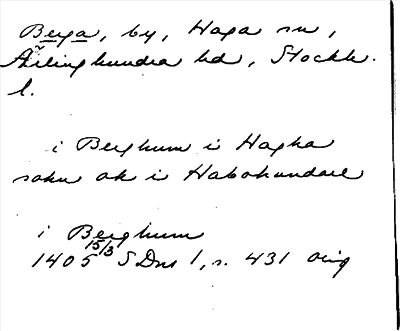 Berga, by, Haga sn,
Ärlinghundra hd, Stockh.
l.
i Berghum i Hagha
sokn ok i Habohundare
i Berghum
1405 15/3 SDns 1, s. 431 orig